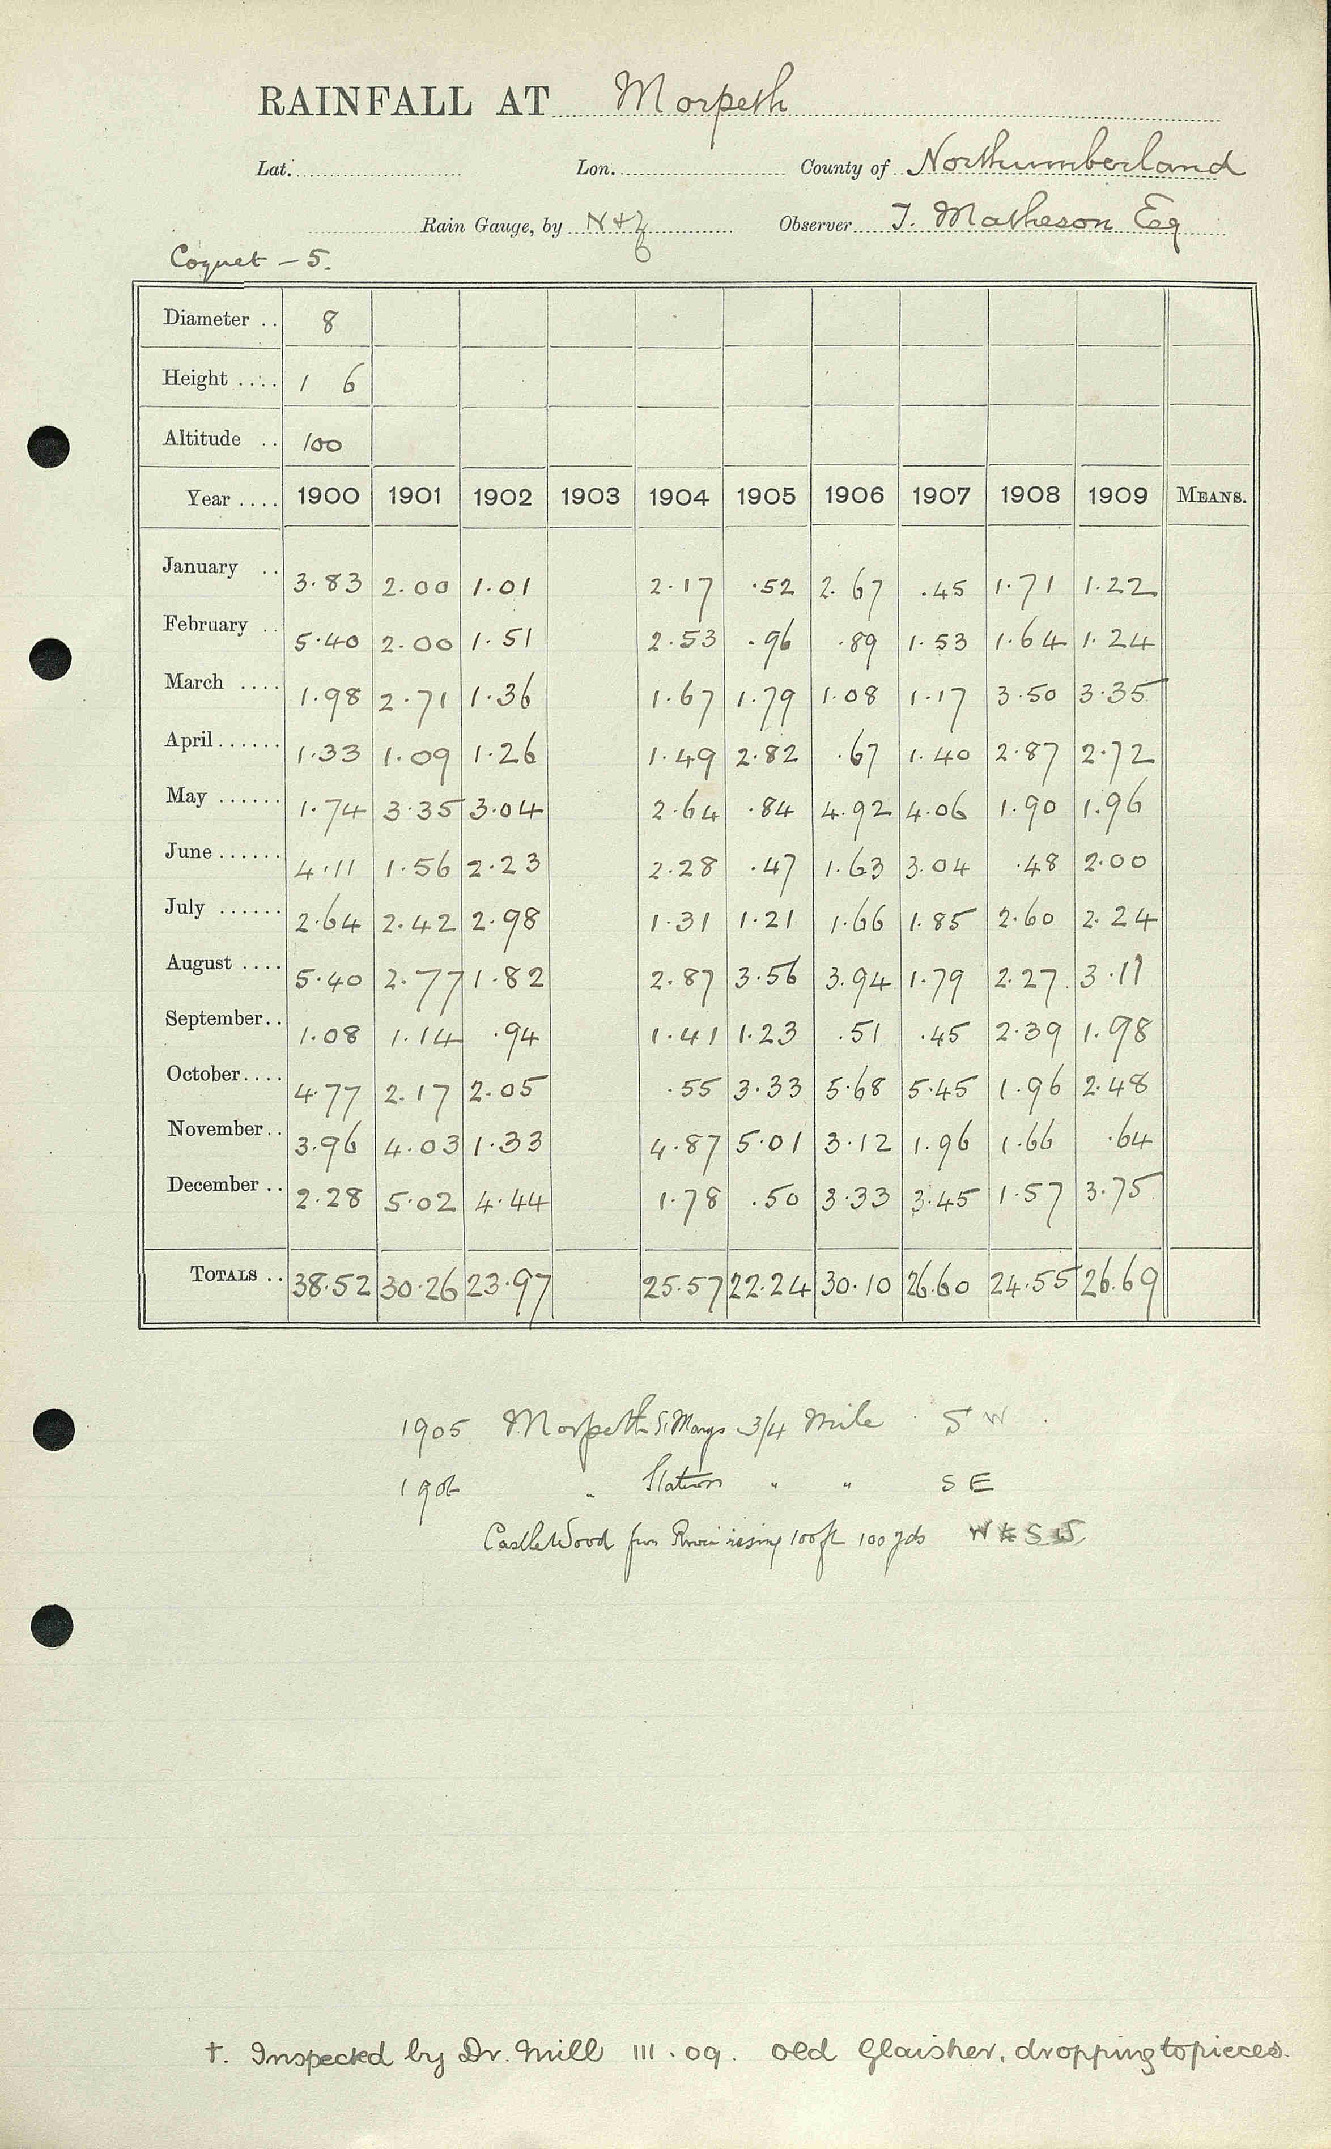 RAINFALL AT Morpeth
Lat. Lon. County of Northumberland
Rain Gauge, by N+Z Observer T. Matheson Esq
Coquet - 5.
Diameter .. 8
Height .... 1 6
Altitude .. 100
Year .... 1900 1901 1902 1903 1904 1905 1906 1907 1908 1909 MEANS.
January .. 3.83 2.00 1.01 2.17 .52 2.67 .45 1.71 1.22
February .. 5.40 2.00 1.51 2.53 .96 .89 1.53 1.64 1.24
March .... 1.98 2.71 1.36 1.67 1.79 1.08 1.17 3.50 3.35
April ...... 1.33 1.09 1.26 1.49 2.82 .67 1.40 2.87 2.72
May ...... 1.74 3.35 3.04 2.64 .84 4.92 4.06 1.90 1.96
June ...... 4.11 1.56 2.23 2.28 .47 1.63 3.04 .48 2.00
July ...... 2.64 2.42 2.98 1.31 1.21 1.66 1.85 2.60 2.24
August .... 5.40 2.77 1.82 2.87 3.56 3.94 1.79 2.27 3.11
September .. 1.08 1.14 .94 1.41 1.23 .51 .45 2.39 1.98
October .... 4.77 2.17 2.05 .55 3.33 5.68 5.45 1.96 2.48
November .. 3.96 4.03 1.33 4.87 5.01 3.12 1.96 1.66 .64
December .. 2.28 5.02 4.44 1.78 .50 3.33 3.45 1.57 3.75
TOTALS .. 38.52 30.26 23.97 25.57 22.24 30.10 26.60 24.55 26.69
1905 Morpeth St Marys 3/4 Mile S W
1906 " Station " " S E
Castle Wood rising 100 ft 100 yds
†. Inspected by Dr. Mill III.09. Old Glaisher, dropping to pieces.